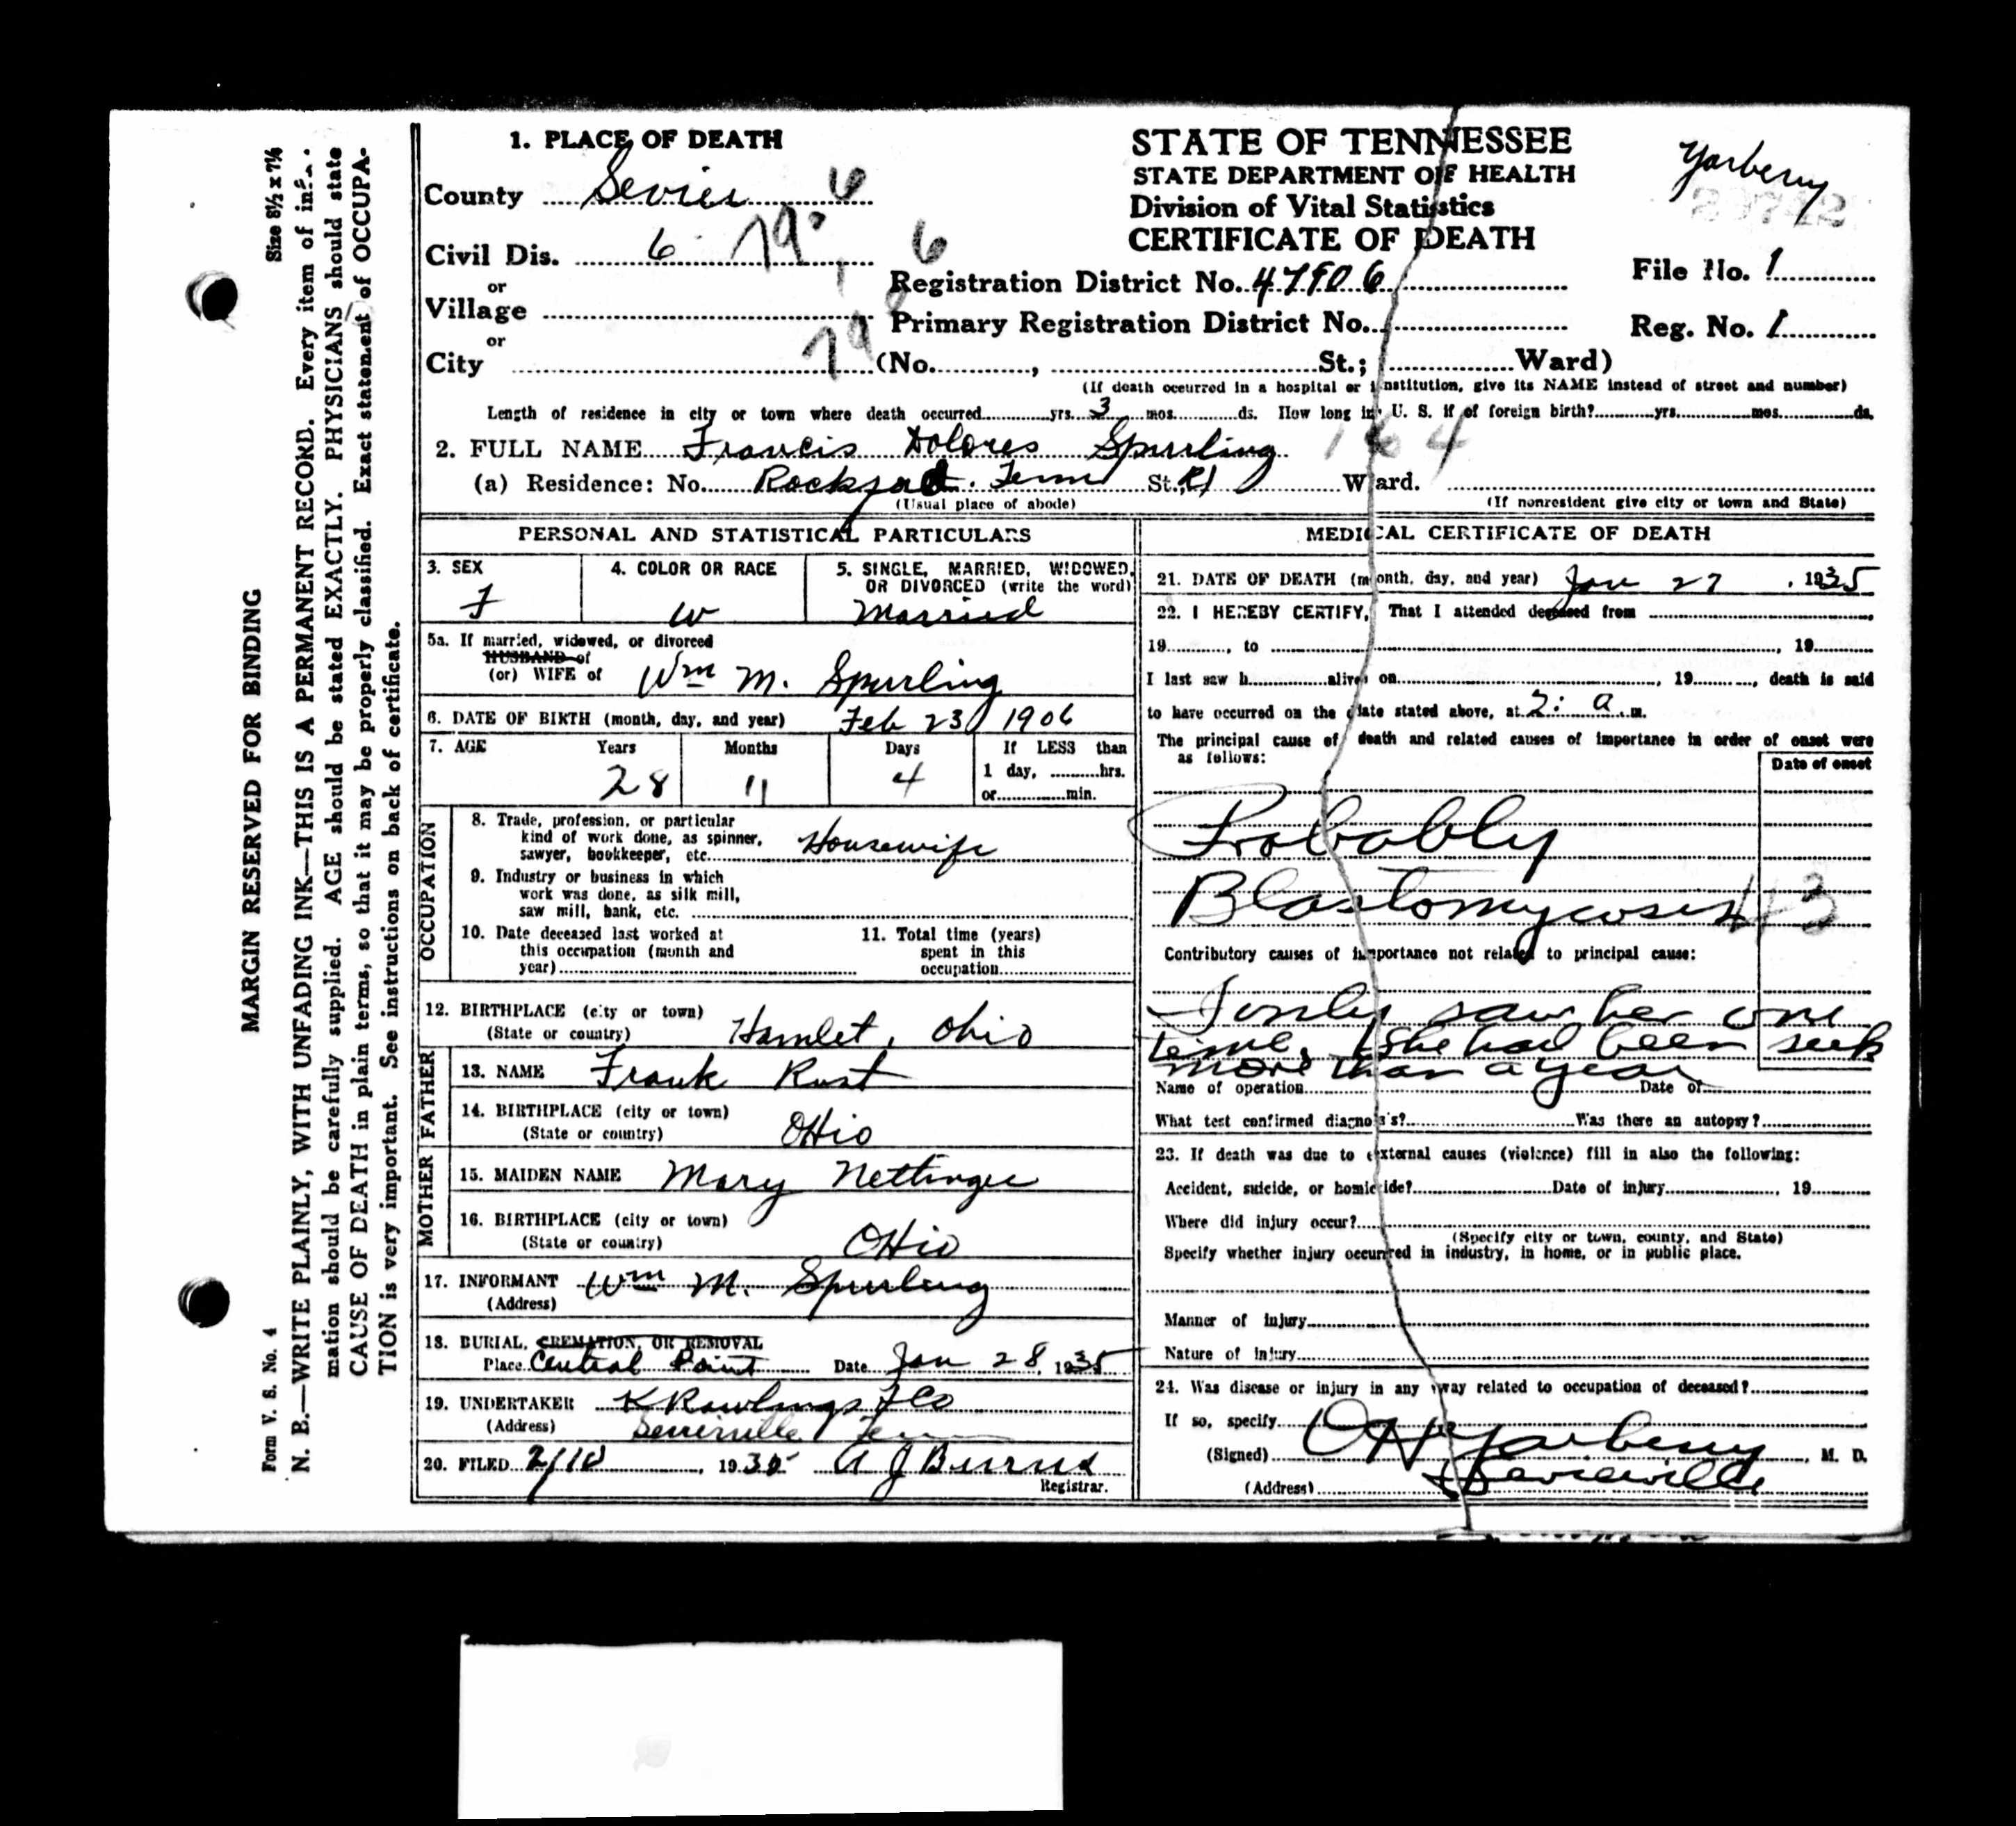 1. PLACE OF DEATH
County Sevier 6
Civil Dis. 6 79. 6
or
Village
or
City 79 (No. , St.; Ward)
STATE OF TENNESSEE
STATE DEPARTMENT OF HEALTH
Division of Vital Statistics
CERTIFICATE OF DEATH
Yarberry
Registration District No. 47906
File No. 1
Primary Registration District No.
Reg. No. 1
(If death occurred in a hospital or institution, give its NAME instead of street and number)
Length of residence in city or town where death occurred yrs. 3 mos. ds. How long in U. S. if of foreign birth? yrs. mos. ds.
2. FULL NAME Francis Dolores Spurling
(a) Residence: No. Rockford. Tenn St., R1 Ward.
(Usual place of abode) (If nonresident give city or town and State)
PERSONAL AND STATISTICAL PARTICULARS
3. SEX
F
4. COLOR OR RACE
W
5. SINGLE, MARRIED, WIDOWED,
OR DIVORCED (write the word)
Married
5a. If married, widowed, or divorced
HUSBAND of
(or) WIFE of Wm M. Spurling
6. DATE OF BIRTH (month, day, and year) Feb 23 1906
7. AGE Years Months Days If LESS than
28 11 4 1 day, hrs.
or min.
OCCUPATION
8. Trade, profession, or particular
kind of work done, as spinner,
sawyer, bookkeeper, etc. Housewife
9. Industry or business in which
work was done, as silk mill,
saw mill, bank, etc.
10. Date deceased last worked at
this occupation (month and
year)
11. Total time (years)
spent in this
occupation
12. BIRTHPLACE (city or town)
(State or country) Hamlet, Ohio
FATHER
13. NAME Frank Rust
14. BIRTHPLACE (city or town)
(State or country) Ohio
MOTHER
15. MAIDEN NAME Mary
16. BIRTHPLACE (city or town)
(State or country) Ohio
17. INFORMANT Wm M. Spurling
(Address)
18. BURIAL, CREMATION, OR REMOVAL
Place Central Point Date Jan 28, 1935
19. UNDERTAKER Rawlings & Co
(Address) Sevierville Tenn
20. FILED 2/10, 1935 A J Burns
Registrar.
MEDICAL CERTIFICATE OF DEATH
21. DATE OF DEATH (month, day, and year) Jan 27, 1935
22. I HEREBY CERTIFY, That I attended deceased from
19 , to , 19
I last saw h alive on , 19 , death is said
to have occurred on the date stated above, at 2: a.m.
The principal cause of death and related causes of importance in order of onset were
as follows:
Date of onset
Probably
Blastomycosis 43
Contributory causes of importance not related to principal cause:
I only saw her one
time. She had been sick
more than a year
Name of operation Date of
What test confirmed diagnosis? Was there an autopsy?
23. If death was due to external causes (violence) fill in also the following:
Accident, suicide, or homicide? Date of injury , 19
Where did injury occur?
(Specify city or town, county, and State)
Specify whether injury occurred in industry, in home, or in public place.
Manner of injury
Nature of injury
24. Was disease or injury in any way related to occupation of deceased?
If so, specify
(Signed) O H Yarberry, M. D.
(Address) Sevierville
Size 8½ x 7⅛
MARGIN RESERVED FOR BINDING
Form V. S. No. 4
N. B.—WRITE PLAINLY, WITH UNFADING INK—THIS IS A PERMANENT RECORD. Every item of infor-
mation should be carefully supplied. AGE should be stated EXACTLY. PHYSICIANS should state
CAUSE OF DEATH in plain terms, so that it may be properly classified. Exact statement of OCCUPA-
TION is very important. See instructions on back of certificate.